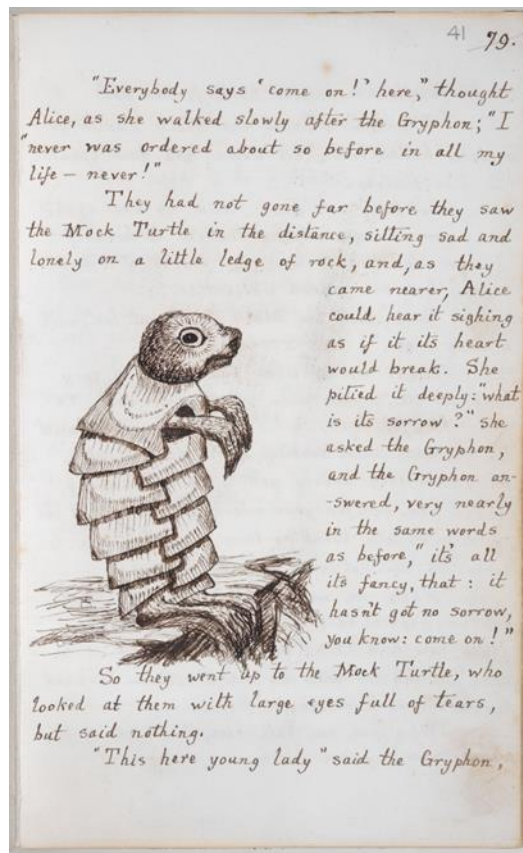 41 79.
"Everybody says 'come on!' here," thought
Alice, as she walked slowly after the Gryphon; "I
"never was ordered about so before in all my
life — never!"
They had not gone far before they saw
the Mock Turtle in the distance, sitting sad and
lonely on a little ledge of rock, and, as they
came nearer, Alice
could hear it sighing
as if it its heart
would break. She
pitied it deeply: "what
is its sorrow?" she
asked the Gryphon,
and the Gryphon an-
-swered, very nearly
in the same words
as before, "it's all
its fancy, that: it
hasn't got no sorrow,
you know: come on!"
So they went up to the Mock Turtle, who
looked at them with large eyes full of tears,
but said nothing.
"This here young lady" said the Gryphon,